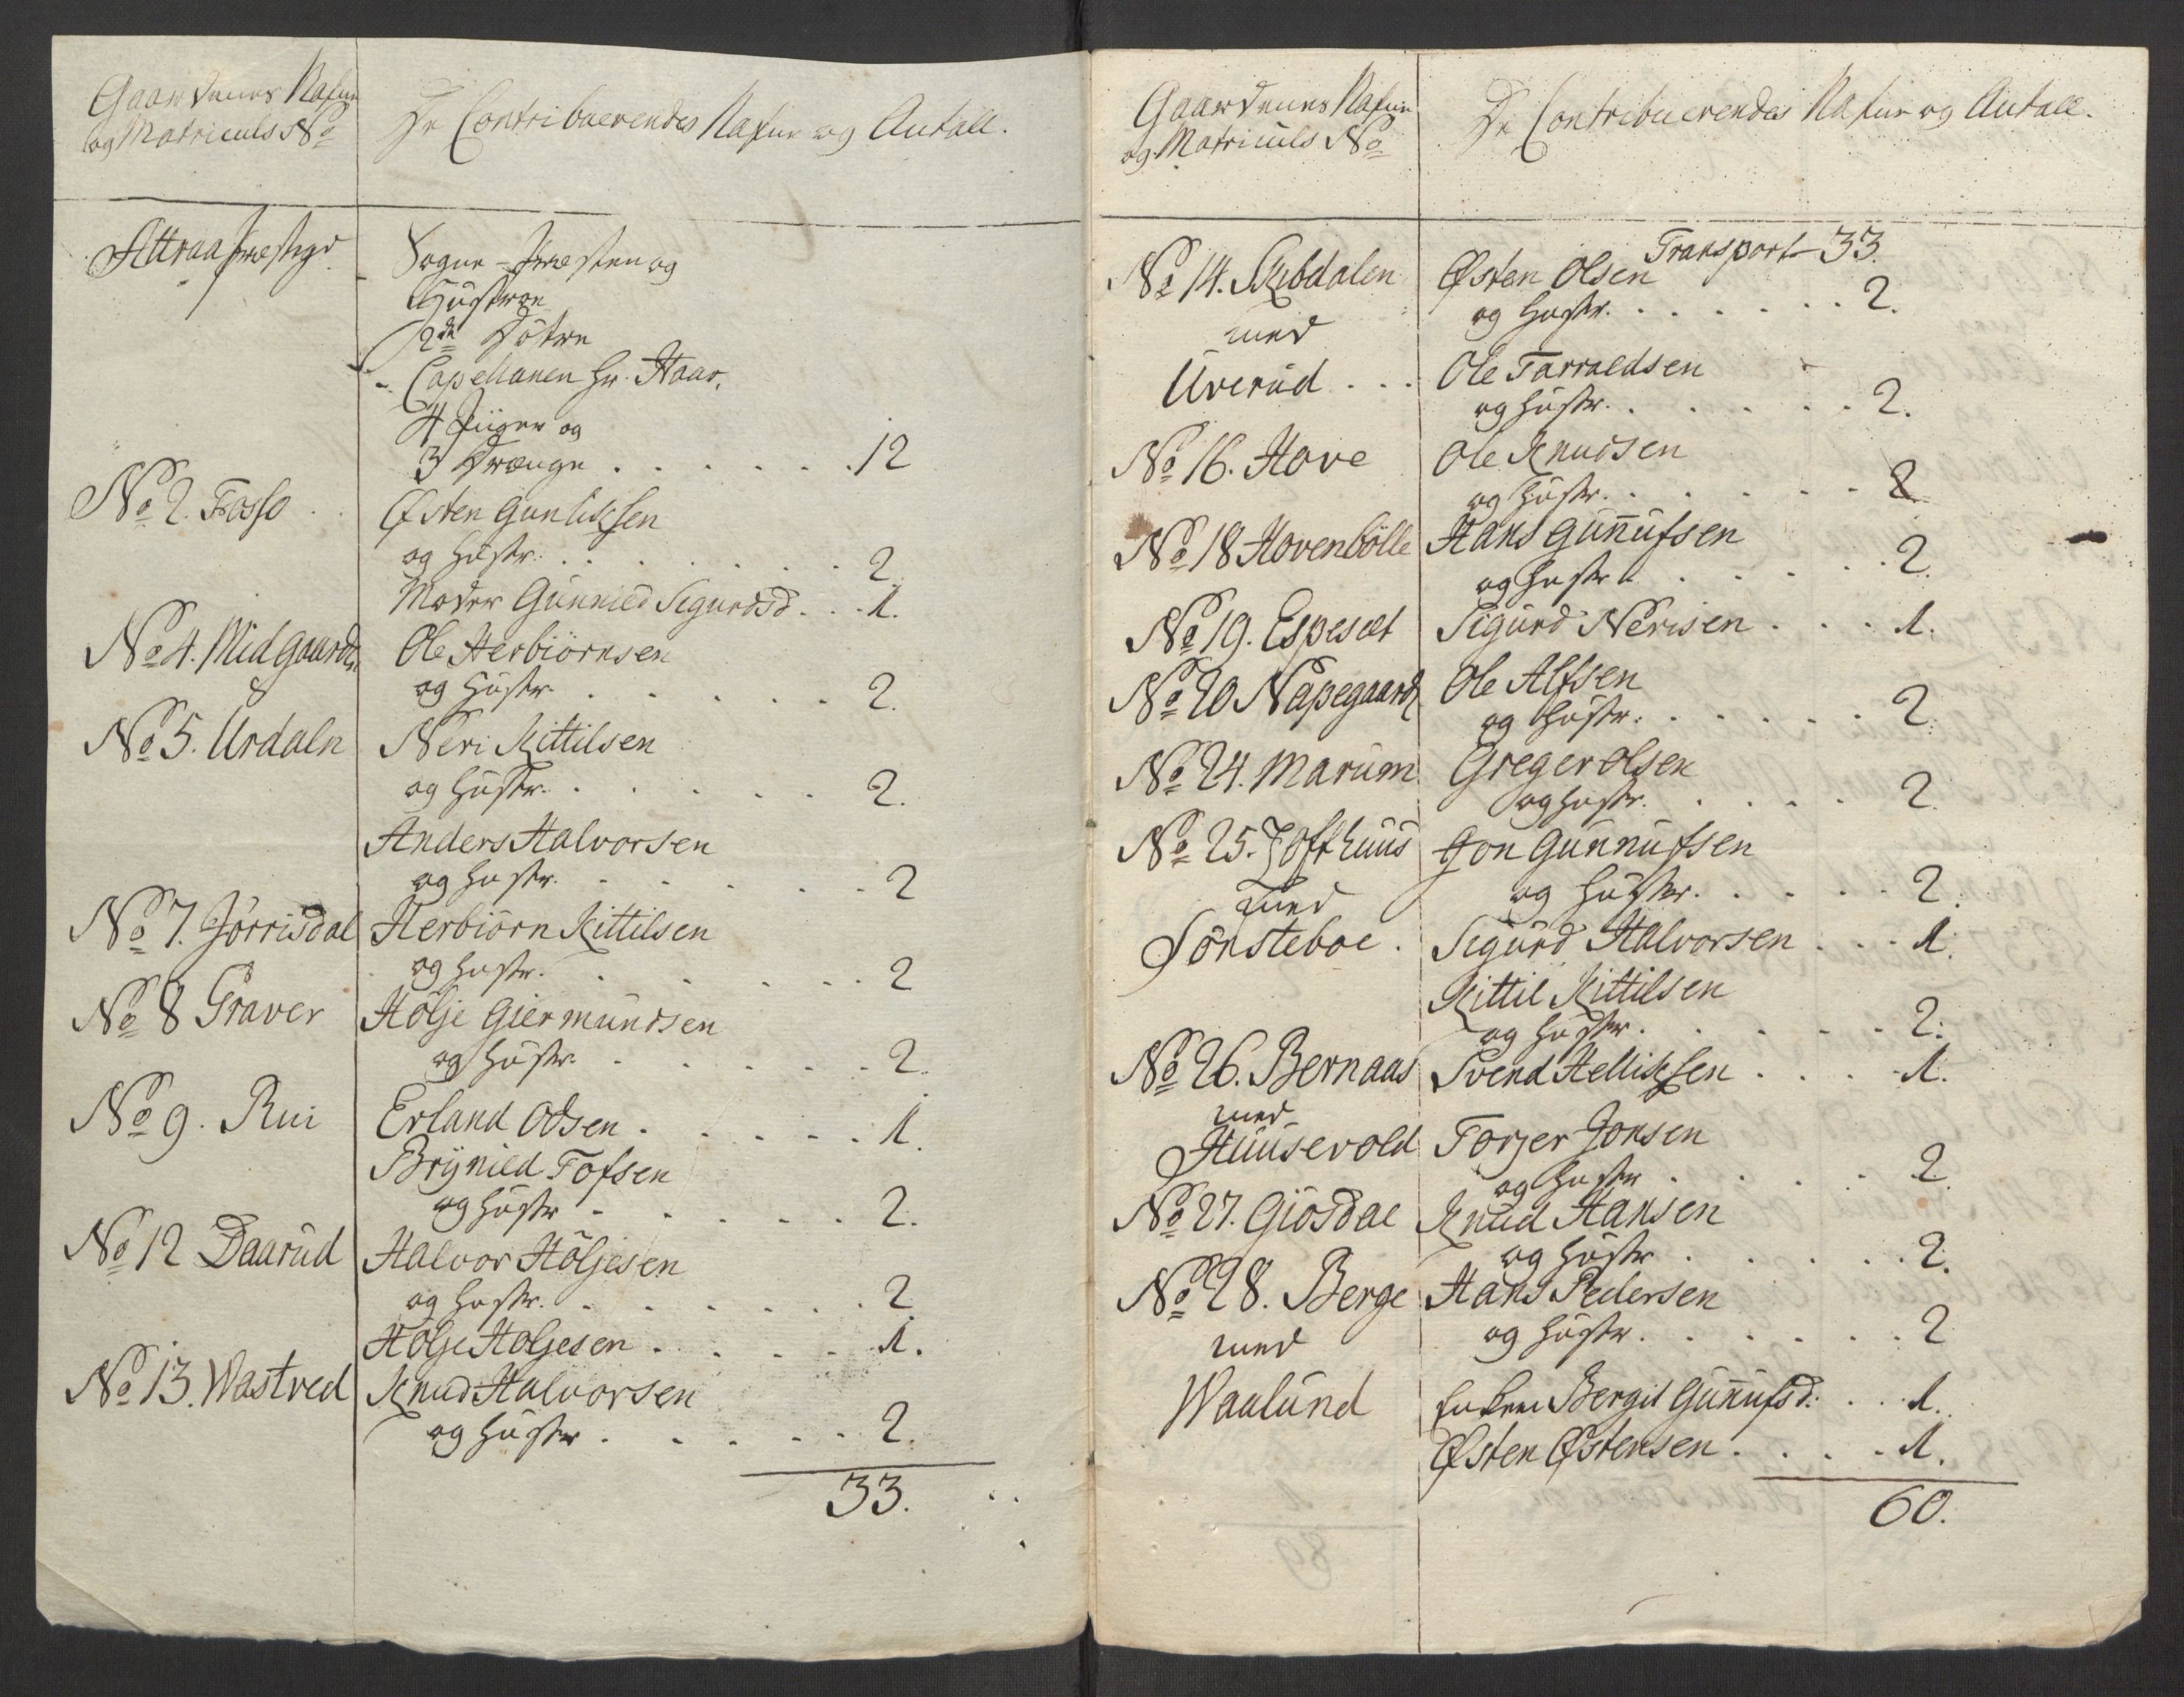 Gaardenes Nafne
og Matriculs No
De Contribuerendes Nafne og Antall.
Attraa Præstegd
Sogne-Præsten og
Hustroe
2de Døtre
Capellanen Hr. Haar,
4 Piiger og
3 Drænge . . . . . . . 12
No 2. Fosso . .
Østen Gunlichsen
og Hustr. . . . . . . . 2.
Moder Gunnild Sigurdsd. . . 1.
No 4. Midgaarden
Ole Herbiörnsen
og Hustr. . . . . . . 2.
No 5. Urdaln
Neri Kittilsen
og Hustr. . . . . . . 2.
Anders Halvorsen
og Hustr. . . . . . . 2
No 7. Jörrisdal
Herbiörn Kittilsen
og Hustr. . . . . . . 2
No 8 Graver
Hölje Giermundsen
og Hustr. . . . . . . 2.
No 9. Rui
Erland Odsen . . . . . . 1.
Brÿnild Tofsen
og Hustr . . . . . . 2.
No 12 Daarud
Halvor Höljesen
og Hustr. . . . . . . 2
Holje Holjesen . . . . . 1.
No 13. Wastved
Knud Halvorsen
og Hustr . . . . . . 2.
33.
Gaardenes Nafne
og Matriculs No
De Contribuerendes Nafne og Antall.
Transport 33.
No 14. Skibdalen
Østen Olsen
og Hustr. . . . . . . 2.
med
Uverud . . .
Ole Tarraldsen
og Hustr. . . . . . . 2.
No 16. Hove
Ole Knudsen
og Hustr. . . . . . . 2
No 18 Hovenbölle
Hans Gun̅ufsen
og Hustr. . . . . . 2.
No 19. Espeset
Sigurd Nerisen . . . 1.
No 20 Napegaard
Ole Alfsen
og Hustr. . . . . . . 2.
No 24. Marum
Greger Olsen
og Hustr. . . . . . 2.
No 25. Tofthuus
Jon Gunnufsen
og Hustr. . . . . . 2.
med
Sönsteboe .
Sigurd Halvorsen . . . 1.
Kittil Kittilsen
og Hustr. . . . . . . 2.
No 26. Bernaas
Svend Hellichsen . . . . 1.
med
Huusevold
Torjer Jonsen
og Hustr . . . . . 2
No 27. Giösdal
Knud Hansen
og Hustr . . . . . . 2.
No 28. Berge
Hans Pedersen
og Hustr. . . . . . . 2
med
Waalund
Enken Bergit Gun̅ufsd: . . . 1.
Østen Østensen . . . . 1.
60.